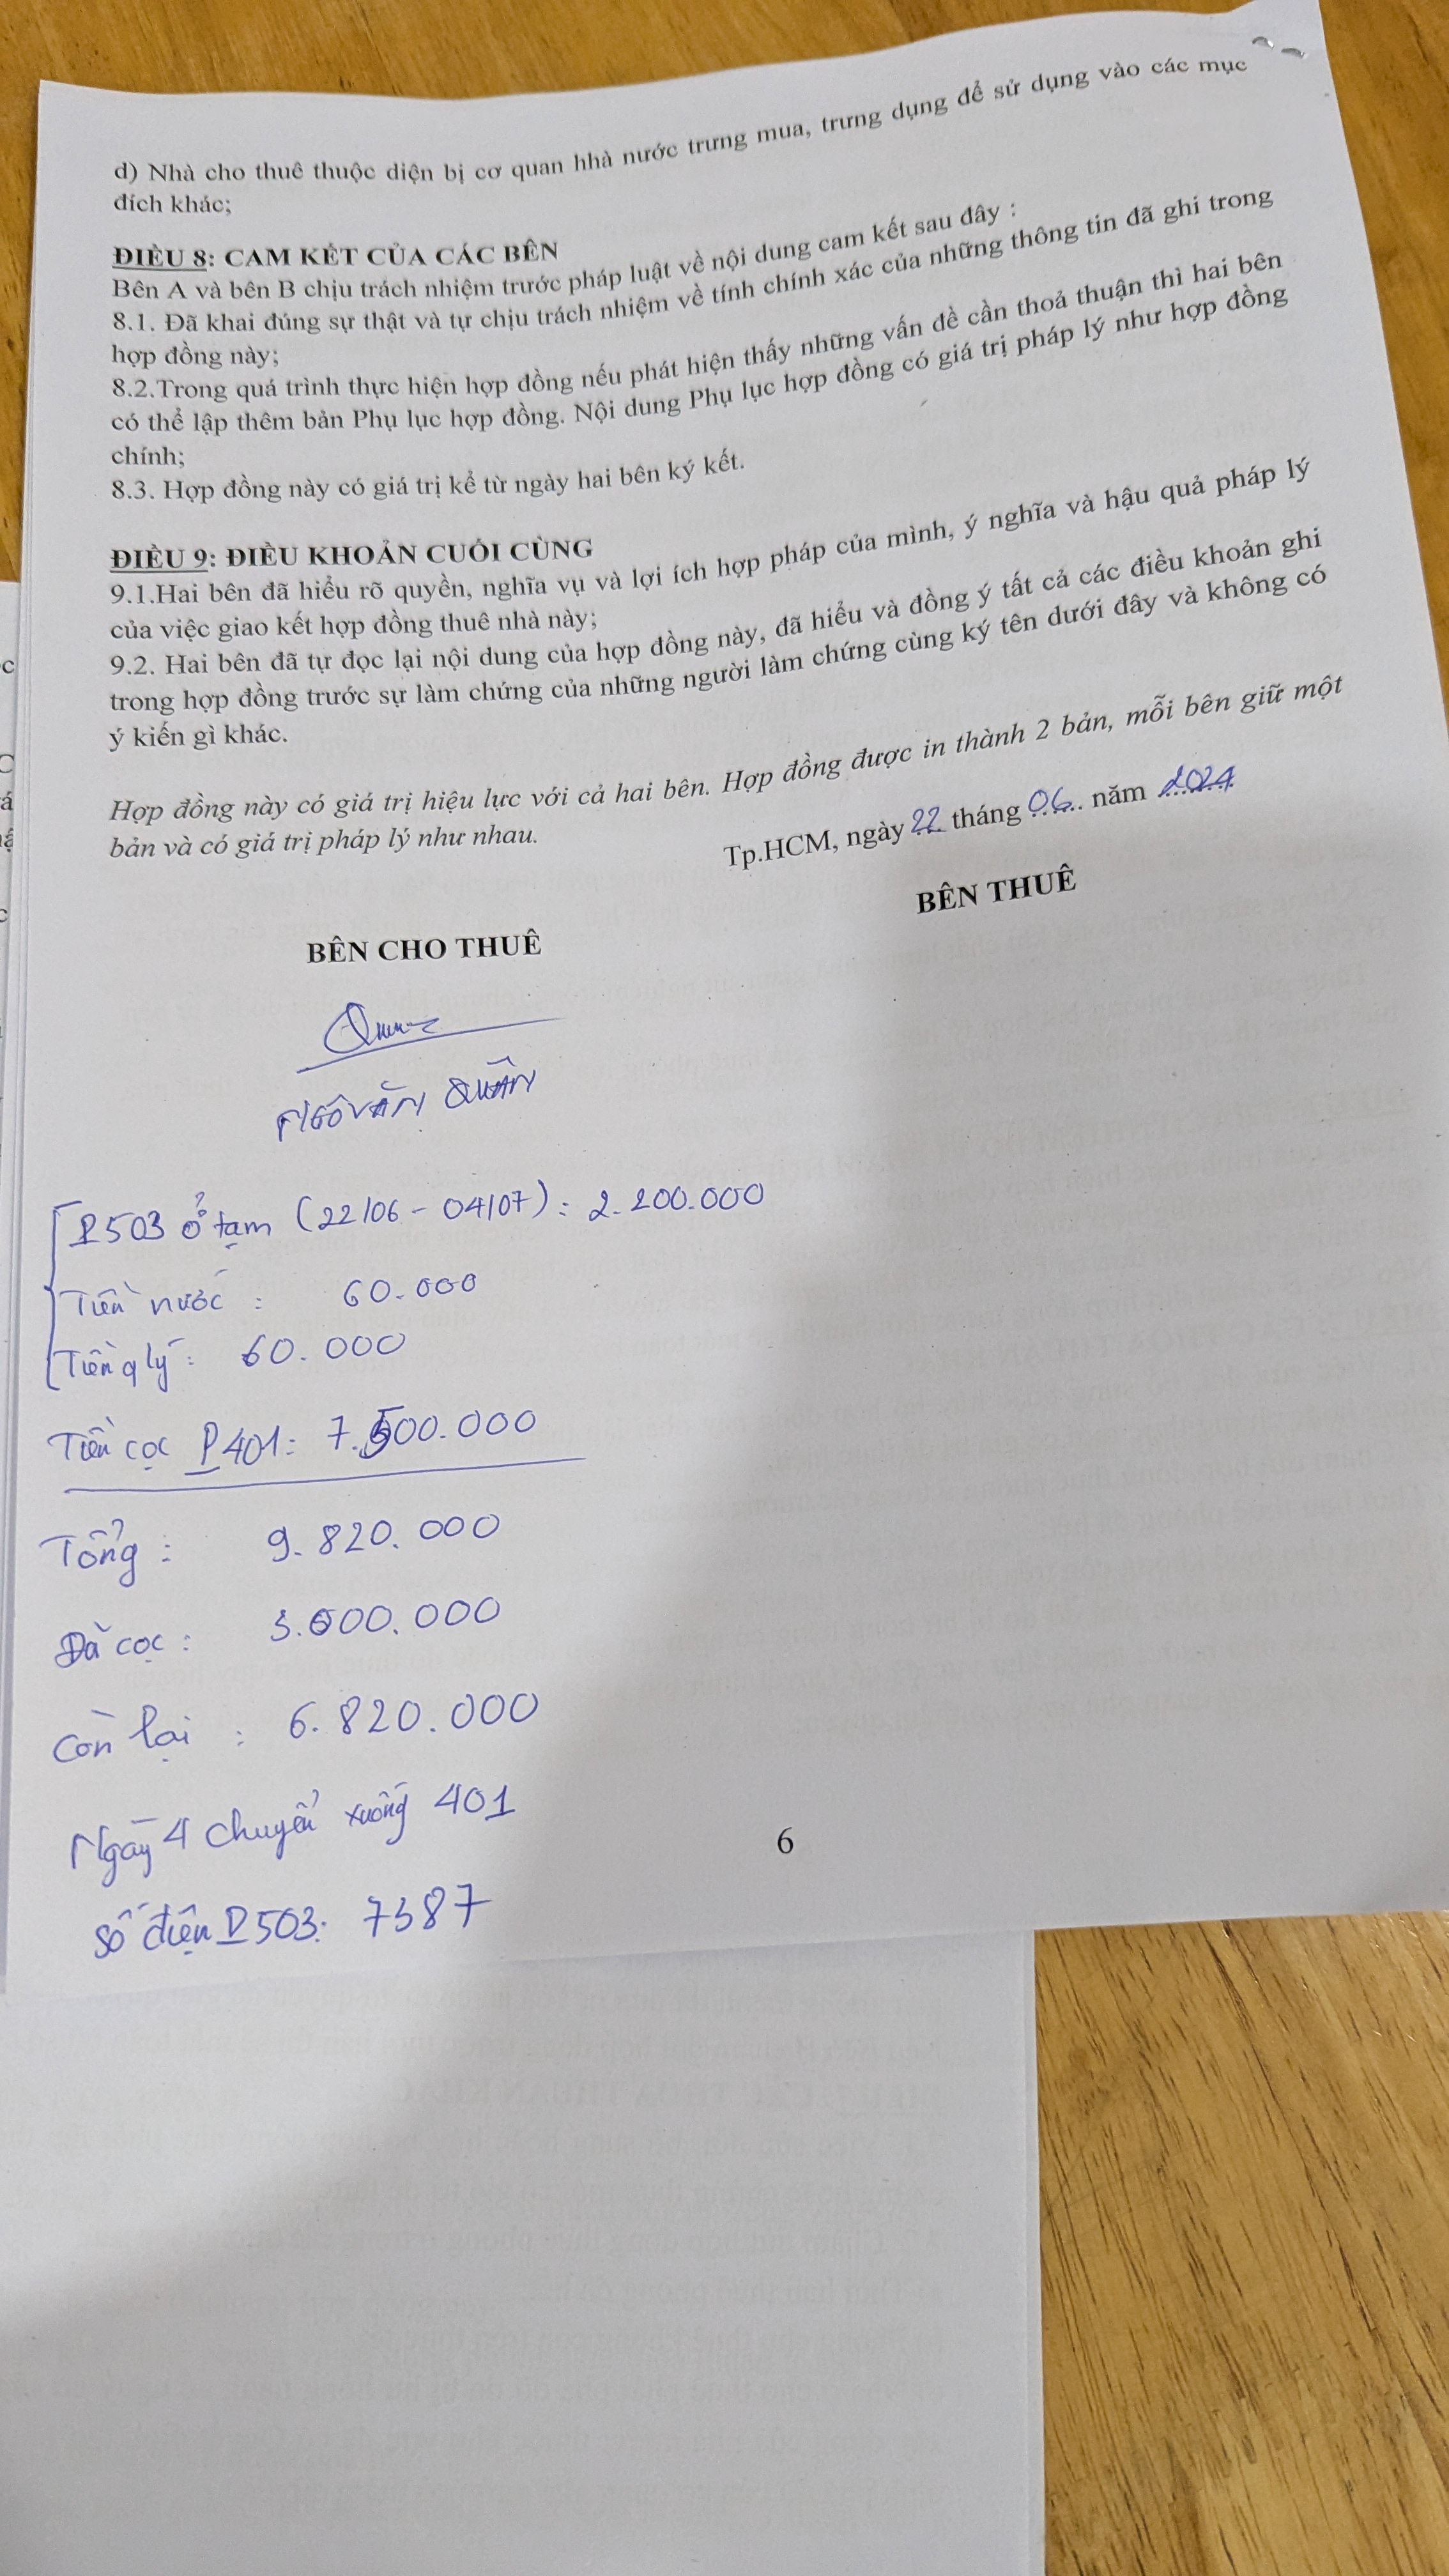 d) Nhà cho thuê thuộc diện bị cơ quan hhà nước trưng mua, trưng dụng để sử dụng vào các mục
đích khác;
ĐIỀU 8: CAM KẾT CỦA CÁC BÊN
Bên A và bên B chịu trách nhiệm trước pháp luật về nội dung cam kết sau đây :
8.1. Đã khai đúng sự thật và tự chịu trách nhiệm về tính chính xác của những thông tin đã ghi trong
hợp đồng này;
8.2.Trong quá trình thực hiện hợp đồng nếu phát hiện thấy những vấn đề cần thoả thuận thì hai bên
có thể lập thêm bản Phụ lục hợp đồng. Nội dung Phụ lục hợp đồng có giá trị pháp lý như hợp đồng
chính;
8.3. Hợp đồng này có giá trị kể từ ngày hai bên ký kết.
ĐIỀU 9: ĐIỀU KHOẢN CUỐI CÙNG
9.1.Hai bên đã hiểu rõ quyền, nghĩa vụ và lợi ích hợp pháp của mình, ý nghĩa và hậu quả pháp lý
của việc giao kết hợp đồng thuê nhà này;
9.2. Hai bên đã tự đọc lại nội dung của hợp đồng này, đã hiểu và đồng ý tất cả các điều khoản ghi
trong hợp đồng trước sự làm chứng của những người làm chứng cùng ký tên dưới đây và không có
ý kiến gì khác.
Hợp đồng này có giá trị hiệu lực với cả hai bên. Hợp đồng được in thành 2 bản, mỗi bên giữ một
bản và có giá trị pháp lý như nhau.
Tp.HCM, ngày 22 tháng 06 năm 2024
BÊN CHO THUÊ
BÊN THUÊ
NGÔ VĂN QUÂN
P503 ở tạm (22/06 - 04/07): 2.200.000
Tiền nước : 60.000
Tiền qlý : 60.000
Tiền cọc P401: 7.500.000
Tổng : 9.820.000
Đã cọc : 3.000.000
Còn lại : 6.820.000
Ngày 4 chuyển xuống 401
Số điện P503: 7387
6